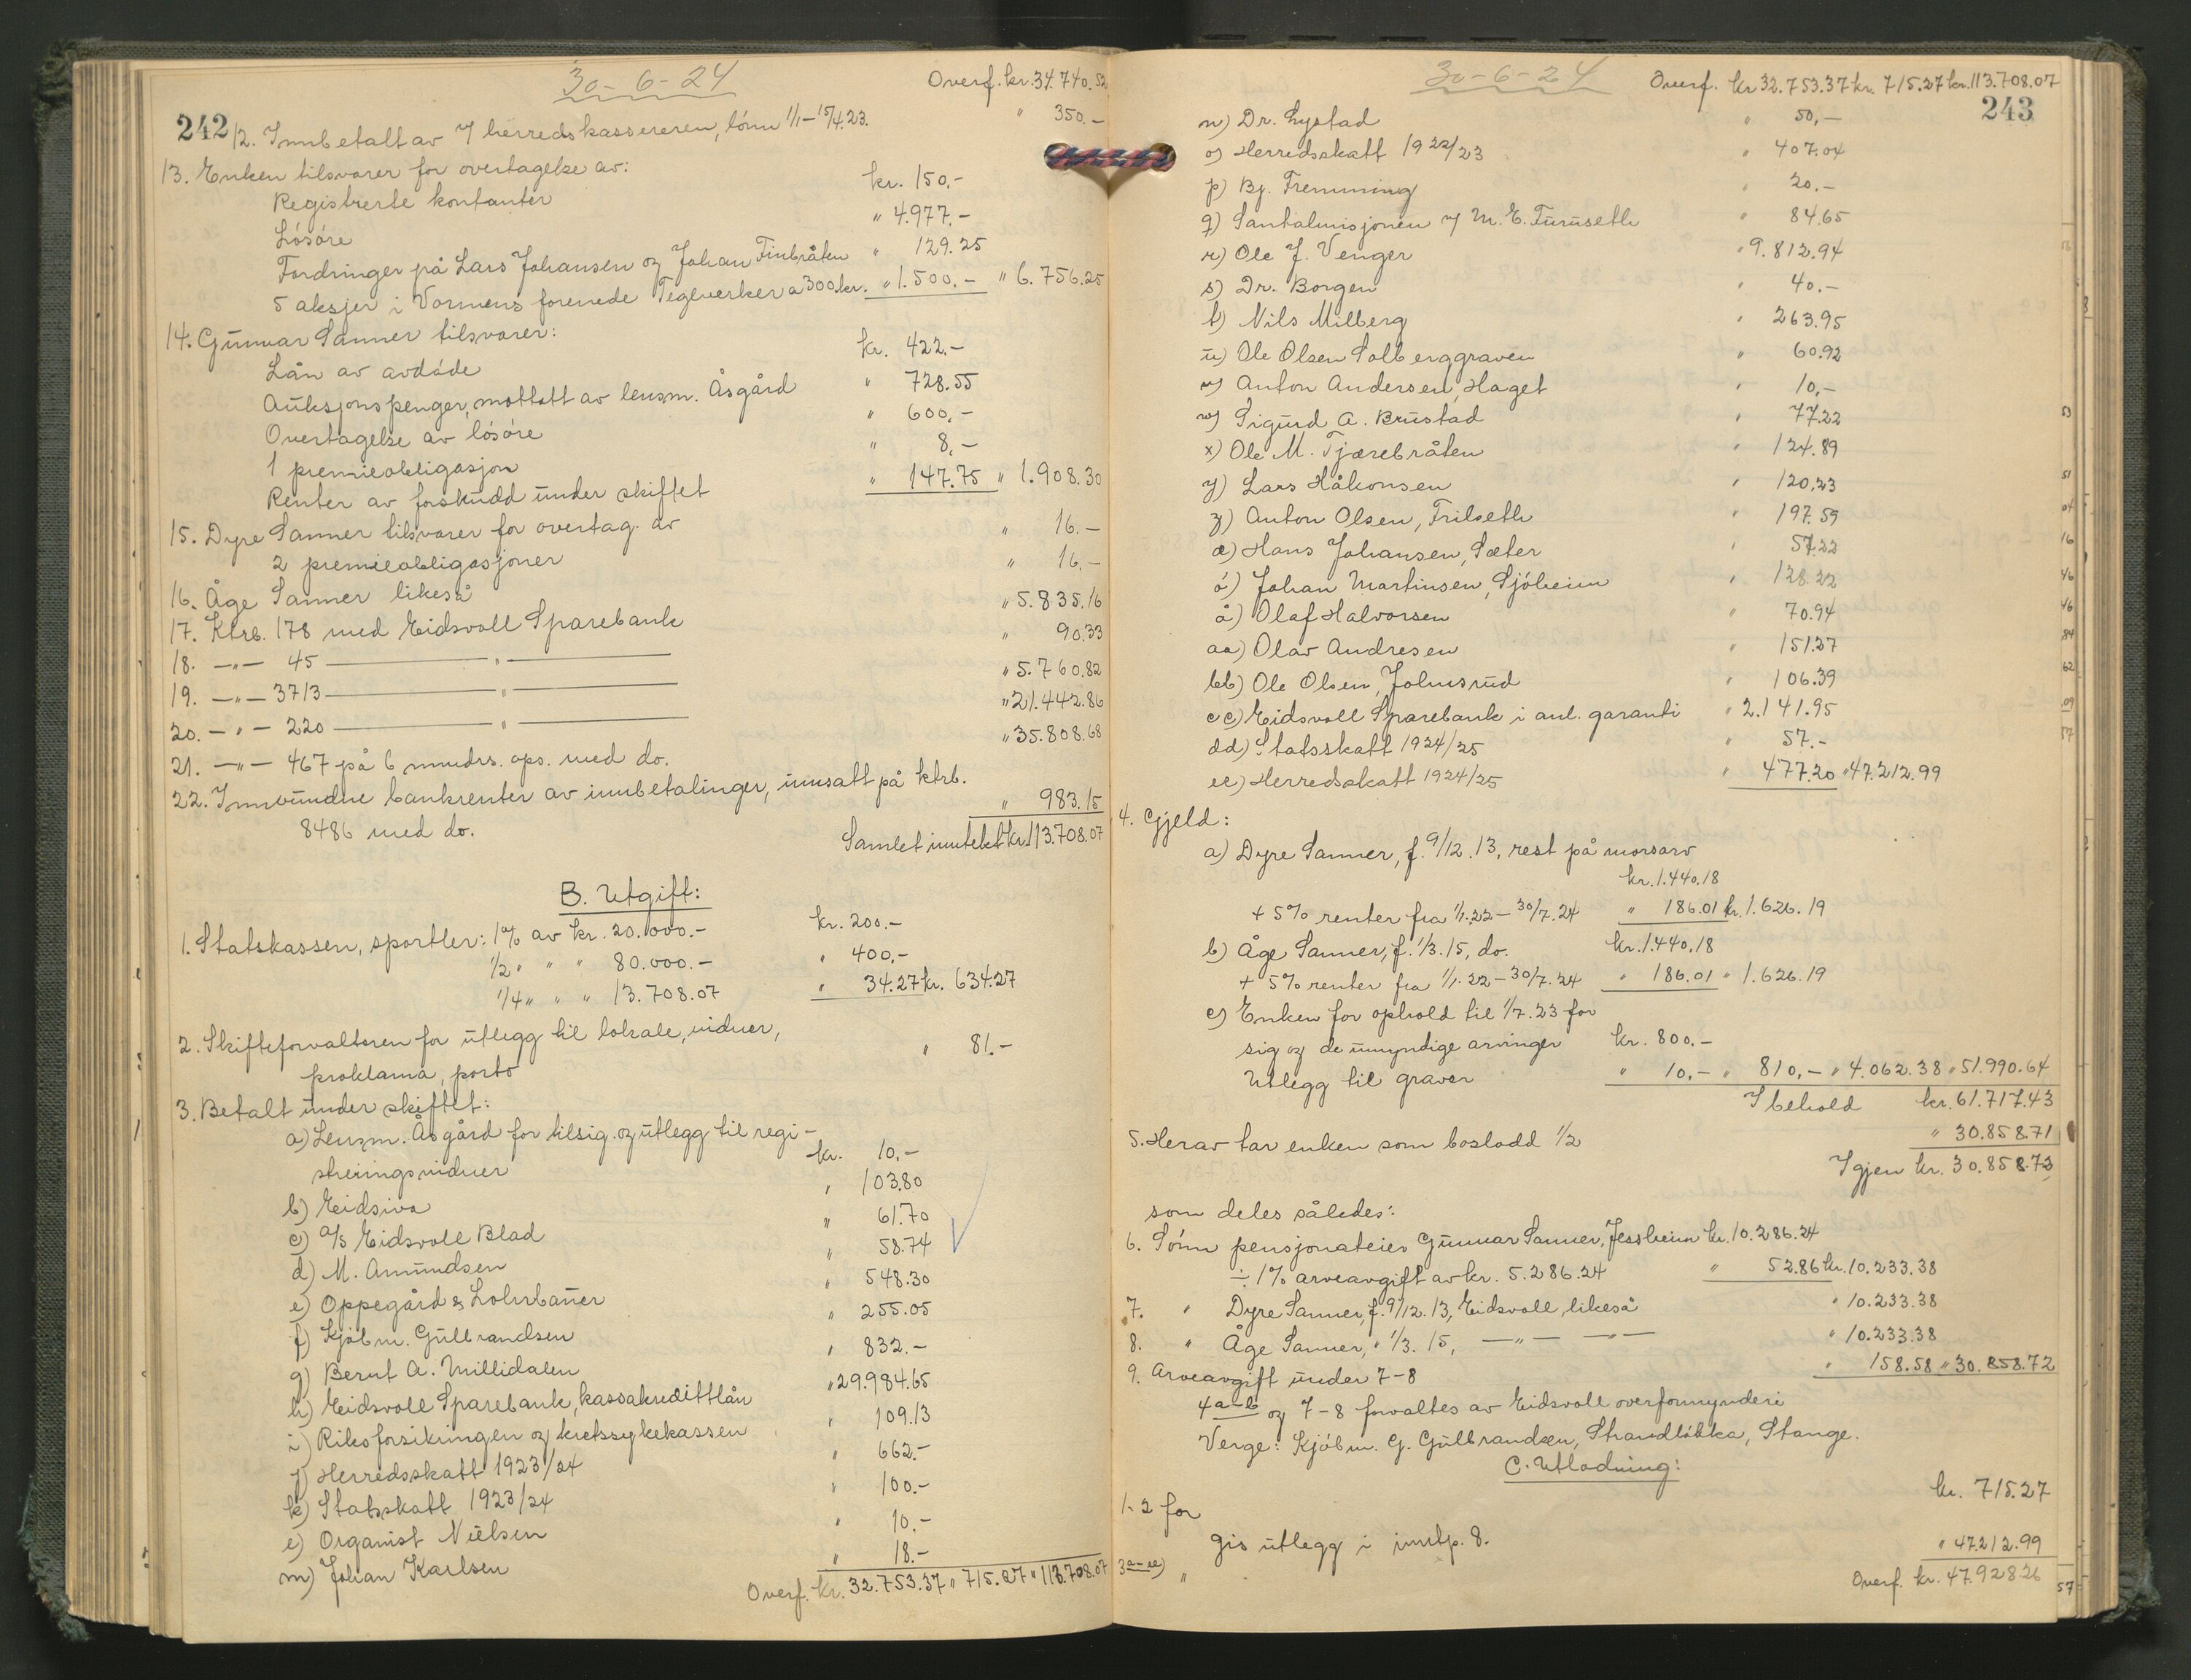 30-6-24
Overf. kr. 34.740.52
242
12. Innbetalt av herredskassereren, lönn 1/1-15/4.23. " 350.-
13. Enken tilsvarer for overtagelse av:
Registrerte kontanter kr. 150.-
Lösöre " 4.977.-
Fordringer på Lars Johansen og Johan Finbråten " 129.25
5 aksjer i Vormens forenede Teglverker a 300 kr. " 1.500.- " 6.756.25
14. Gunnar Sanner tilsvarer:
Lån av avdöde kr. 422.-
Auksjonspenger, mottatt av lensm. Åsgård " 728.55
Overtagelse av lösöre " 600.-
1 premieobligasjon " 8.-
Renter av forskudd under skiftet " 147.75 " 1.908.30
15. Dyre Sanner tilsvarer for overtag. av
2 premieobligasjoner " 16.-
16. Åge Sanner likeså " 16.-
17. Ktrb. 178 med Eidsvoll Sparebank " 5.835.16
18. -"- 45 " 90.33
19. -"- 3713 " 5.760.82
20. -"- 220 " 21.442.86
21. -"- 467 på 6 mndrs. ops. med do. " 35.808.68
22. Innvundne bankrenter av innbetalinger, innsatt på ktrb.
8486 med do. " 983.15
Samlet inntekt kr. 113.708.07
B. Utgift:
1. Statskassen, sportler: 1% av kr. 20.000.- kr. 200.-
1/2 " " " 80.000.- " 400.-
1/4 " " " 13.708.07 " 34.27 kr. 634.27
2. Skifteforvalteren for utlegg til lokale, vidner,
proklama, porto " 81.-
3. Betalt under skiftet:
a) Lensm. Åsgård for tilsig. og utlegg til regi-
streringsvidner kr. 10.-
b) Eidsiva " 103.80
c) A/S Eidsvoll Blad " 61.70
d) M. Amundsen " 58.74
e) Oppegård & Lohrbauer " 548.30
f) Kjöbm. Gulbrandsen " 255.05
g) Bernt A. Millidalen " 832.-
h) Eidsvoll Sparebank, kassakredittlån " 29.984.65
i) Riksforsikringen og kretssykekassen " 109.13
j) Herredsskatt 1923/24 " 662.-
k) Statsskatt 1923/24 " 100.-
l) Organist Nielsen " 10.-
m) Johan Karlsen " 18.-
Overf. kr. 32.753.37 " 715.27 " 113.708.07
30-6-24
Overf. kr 32.753.37 kr. 715.27 kr. 113.708.07
243
n) Dr. Lystad " 50.-
o) Herredsskatt 1922/23 " 407.04
p) Bj. Fremming " 20.-
q) Santalmisjonen v/ M. E. Furuseth " 84.65
r) Ole J. Venger " 9.812.94
s) Dr. Borgen " 40.-
t) Nils Milberg " 263.95
u) Ole Olsen Solberggraven " 60.92
v) Anton Andersen, Haget " 10.-
w) Sigurd A. Brustad " 77.22
x) Ole M. Tjærebråten " 124.89
y) Lars Håkonsen " 120.23
z) Anton Olsen, Trilseth " 197.59
æ) Hans Johansen, Sæter " 57.22
ö) Johan Martinsen, Sjöheim " 128.22
å) Olaf Halvorsen " 70.94
aa) Olav Andresen " 151.27
bb) Ole Olsen, Johnsrud " 106.39
cc) Eidsvoll Sparebank i anl. garanti " 2.141.95
dd) Statsskatt 1924/25 " 57.-
ee) Herredsskatt 1924/25 " 477.20 " 47.212.99
4. Gjeld:
a) Dyre Sanner, f. 9/12.13, rest på morsarv
kr. 1.440.18
+ 5% renter fra 1/1.22-30/7.24 " 186.01 kr. 1.626.19
b) Åge Sanner, f. 1/3.15, do. kr. 1.440.18
+ 5% renter fra 1/1.22-30/7.24 " 186.01 " 1.626.19
c) Enken for ophold til 1/7.23 for
sig og de umyndige arvinger kr. 800.-
Utlegg til graver " 10.- " 810.- " 4.062.38 " 51.990.64
I behold kr. 61.717.43
5. Herav tar enken som boslodd 1/2 " 30.858.71
Igjen kr. 30.858.72
som deles således:
6. Sönn pensjonateier Gunnar Sanner, Jessheim kr. 10.286.24
÷ 1% arveavgift av kr. 5.286.24 " 52.86 kr. 10.233.38
7. " Dyre Sanner, f. 9/12.13, Eidsvoll, likeså " 10.233.38
8. " Åge Sanner, " 1/3.15, -"- -"- " 10.233.38
9. Arveavgift under 7-8 " 158.58 " 30.858.72
4a-b og 7-8 forvaltes av Eidsvoll overformynderi
Verge: Kjöbm. G. Gulbrandsen, Strandlökka, Stange.
C. Utlodning:
1-2 for kr. 715.27
gis utlegg i inntp. 8.
3a-ee) " " 47.212.99
Overf. kr. 47.928.26